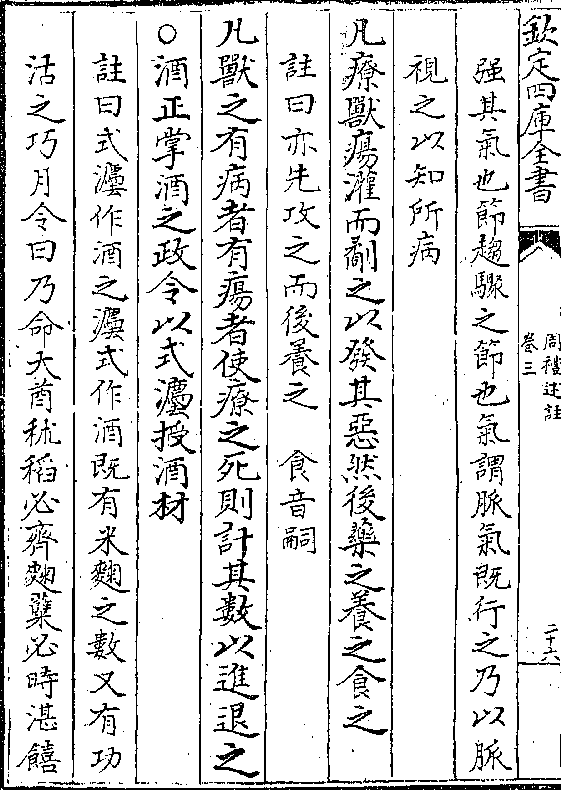 欽定四庫全書
周禮述註
卷三
二十六
强其氣也節趨驟之節也氣謂脈氣既行之乃以脈
視之以知所病
凡療獸瘍灌而劀之以發其惡然後藥之養之食之
註曰亦先攻之而後養之　食音嗣
凡獸之有病者有瘍者使療之死則計其數以進退之
○酒正掌酒之政令以式灋授酒材
註曰式灋作酒之灋式作酒既有米麴之數又有功
沽之巧月令曰乃命大酋秫稻必齊麴糵必時湛饎